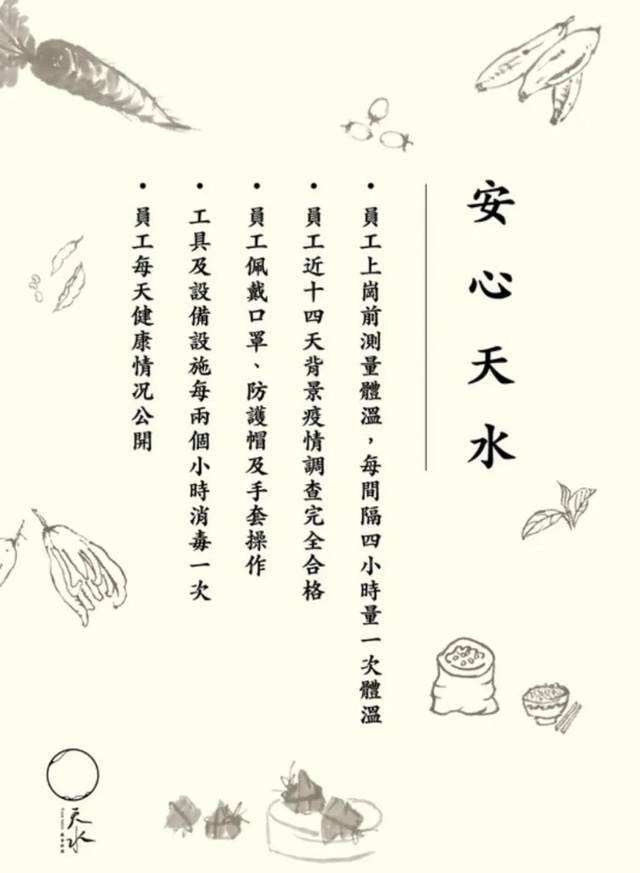 安心天水
• 員工上崗前測量體溫，每間隔四小時量一次體溫
• 員工近十四天背景疫情調查完全合格
• 員工佩戴口罩、防護帽及手套操作
• 工具及設備設施每兩個小時消毒一次
• 員工每天健康情况公開
天水